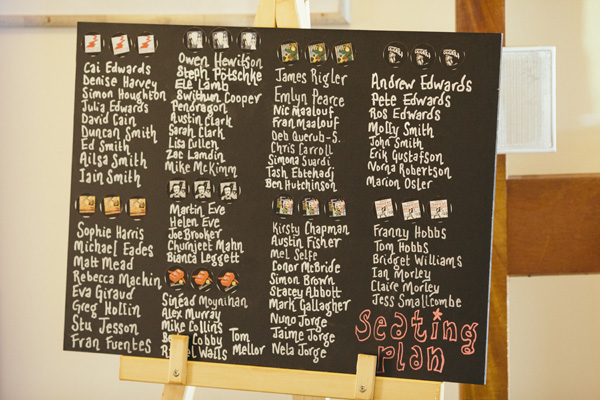 Cai Edwards
Denise Harvey
Simon Houghton
Julia Edwards
David Cain
Duncan Smith
Ed Smith
Ailsa Smith
Iain Smith
Sophie Harris
Michael Eades
Matt Mead
Rebecca Machin
Eva Giraud
Greg Hollin
Stu Jesson
Fran Fuentes
Owen Hewitson
Steph Potschke
Ele Lamb
Swithun Cooper
Pendragon
Austin Clark
Sarah Clark
Lisa Cullen
Zac Lamdin
Mike McKimm
Martin Eve
Helen Eve
Joe Brooker
Churnjeet Mahn
Bianca Leggett
Sinéad Moynihan
Alex Murray
Mike Collins
Cobby Tom
Walls Mellor
James Rigler
Emlyn Pearce
Nic Maalouf
Fran Maalouf
Deb Querub-S.
Chris Carroll
Simona Suardi
Tash Ebtehadj
Ben Hutchinson
Kirsty Chapman
Austin Fisher
Mel Selfe
Conor McBride
Simon Brown
Stacey Abbott
Mark Gallagher
Nuno Jorge
Jaime Jorge
Nela Jorge
Andrew Edwards
Pete Edwards
Ros Edwards
Molly Smith
John Smith
Erik Gustafson
Norna Robertson
Marion Osler
Franny Hobbs
Tom Hobbs
Bridget Williams
Ian Morley
Claire Morley
Jess Smallcombe
Seating
Plan